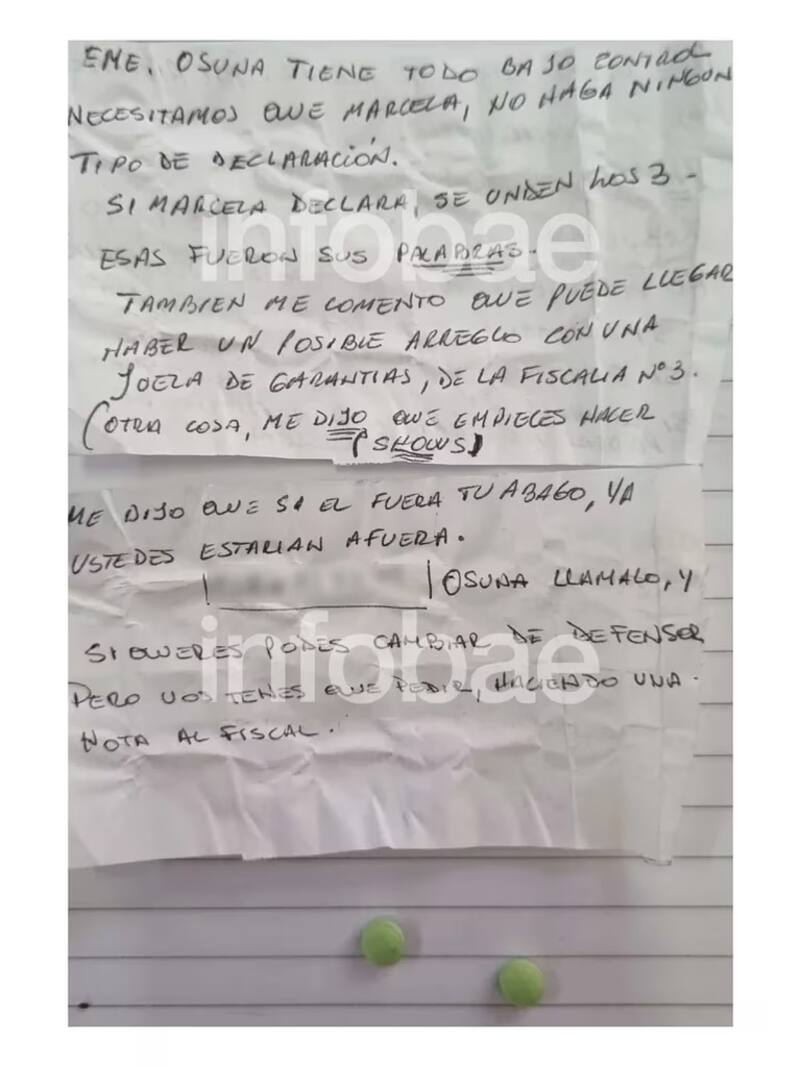 EME. OSUNA TIENE TODO BAJO CONTROL
NECESITAMOS QUE MARCELA, NO HAGA NINGUN
TIPO DE DECLARACIÓN.
SI MARCELA DECLARA, SE UNDEN LOS 3 -
ESAS FUERON SUS PALABRAS.
infobae
TAMBIEN ME COMENTO QUE PUEDE LLEGAR
HABER UN POSIBLE ARREGLO CON UNA
JUEZA DE GARANTIAS, DE LA FISCALIA Nº3.
(OTRA COSA, ME DIJO QUE EMPIECES HACER
(SHOWS)
ME DIJO QUE SI EL FUERA TU ABAGO, YA
USTEDES ESTARIAN AFUERA.
OSUNA LLAMALO, Y
infobae
SI QUERES PODES CAMBIAR DE DEFENSOR
PERO VOS TENES QUE PEDIR, HACIENDO UNA.
NOTA AL FISCAL.